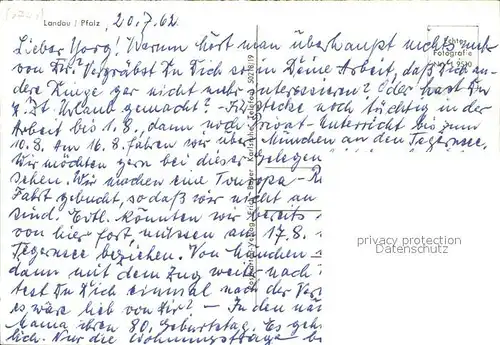 Landau / Pfalz
20.7.62
Lieber Jorg! Warum hört man überhaupt nichts mehr
von Dir? Vergräbst Du Dich so in Deine Arbeit, daß Dich an-
dere Dinge gar nicht mehr interessieren? Oder hast Du
z. Zt. Urlaub gemacht? - Ich stecke noch tüchtig in der
Arbeit bis 1.8., dann noch Privat-Unterricht bis zum
10.8. Am 16.8. fahren wir über München an den Tegernsee.
Wir möchten gern bei dieser Gelegen
sehen. Wir machen eine Touropa-
Fahrt gebucht, so daß wir nicht an
sind. Evtl. könnten wir bereits
von hier fort müssen am 17.8.
Tegernsee beziehen. Von München
dann mit dem Zug weiter nach
test Du Dich einmal nach der Ver
es wäre lieb von Dir? - In den nä
Mama ihren 80. Geburtstag. Es geh
lich. Nur die Wohnungsfrage b
Echte
Fotografie
privacy protection
Datenschutz